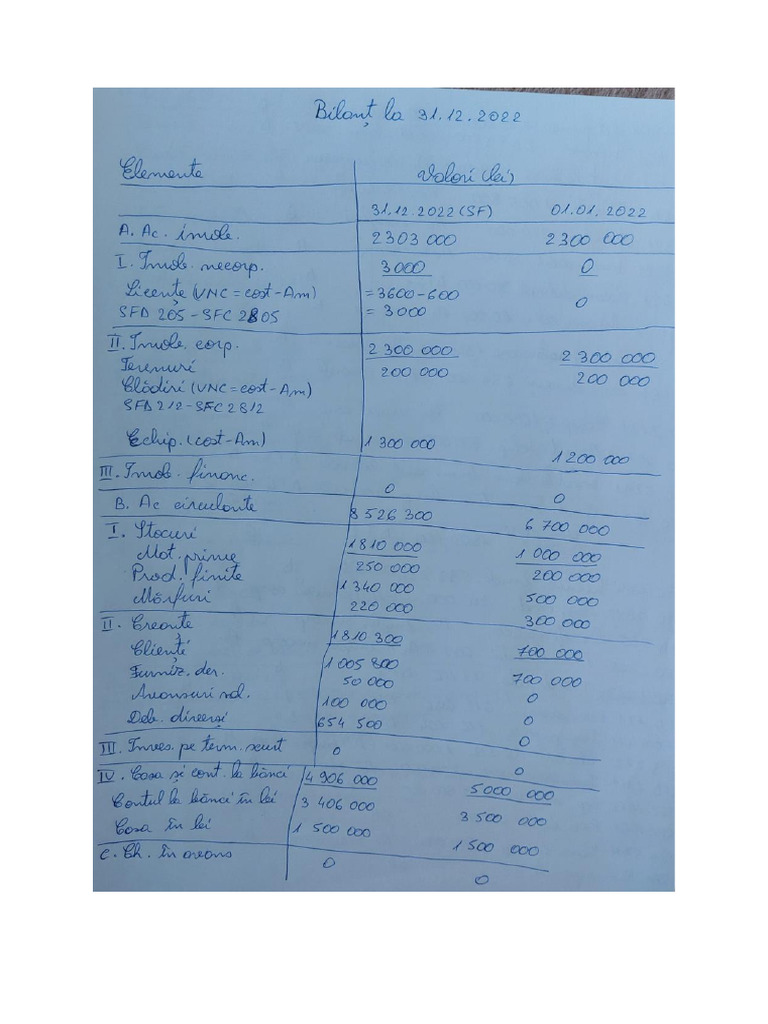 Bilanț la 31.12.2022
Elemente Valori (lei)
31.12.2022 (SF) 01.01.2022
A. Ac. imob. 2303 000 2300 000
I. Imob. necorp. 3000 0
Licențe (VNC = cost - Am) = 3600-600 0
SFD 205 - SFC 2805 = 3000
II. Imob. corp. 2 300 000 2 300 000
Terenuri 200 000 200 000
Clădiri (VNC = cost - Am)
SFD 212 - SFC 2812
Echip. (cost - Am) 1 300 000 1 200 000
III. Imob. financ. 0 0
B. Ac circulante 8 526 300 6 700 000
I. Stocuri 1810 000 1 000 000
Mat. prime 250 000 200 000
Prod. finite 1 340 000 500 000
Mărfuri 220 000 300 000
II. Creanțe 1810 300 700 000
Clienți 1 005 800 700 000
Furniz. deb. 50 000 0
Avansuri sal. 100 000 0
Deb. diverși 654 500 0
III. Inves. pe term. scurt 0 0
IV. Casa și cont. la bănci 4 906 000 5000 000
Contul la bănci în lei 3 406 000 3 500 000
Casa în lei 1 500 000 1 500 000
C. Ch. în avans 0 0